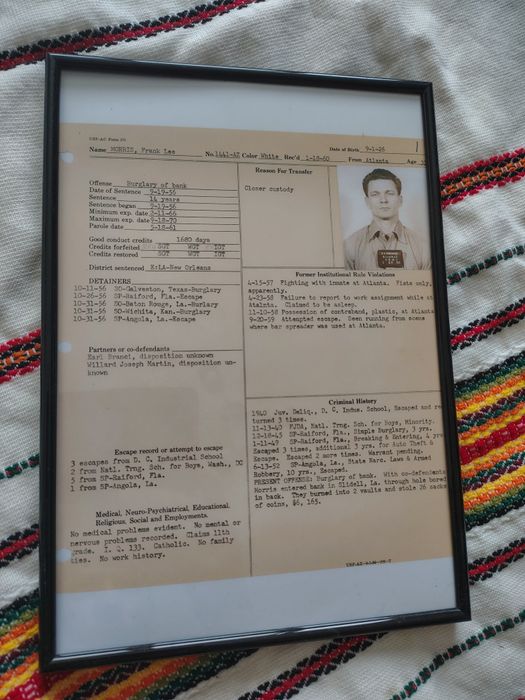 USP-AC Form 271
Name MORRIS, Frank Lee No. 1441-AZ Color White Rec'd 1-18-60 From Atlanta Age
Date of Birth 9-1-26
Offense Burglary of bank
Date of Sentence 9-17-56
Sentence 14 years
Sentence began 9-17-56
Minimum exp. date 2-11-66
Maximum exp. date 9-18-70
Parole date 5-18-61
Good conduct credits 1680 days
Credits forfeited SGT WGT IGT
Credits restored SGT WGT IGT
District sentenced E:LA-New Orleans
DETAINERS
10-11-56 SO-Galveston, Texas-Burglary
10-26-56 SP-Raiford, Fla.-Escape
10-31-56 SO-Baton Rouge, La.-Burlary
10-31-56 SO-Wichita, Kan.-Burglary
10-31-56 SP-Angola, La.-Escape
Partners or co-defendants
Earl Branci, disposition unknown
Willard Joseph Martin, disposition un-
known
Escape record or attempt to escape
3 escapes from D. C. Industrial School
2 from Natl. Trng. Sch. for Boys, Wash., DC
5 from SP-Raiford, Fla.
1 from SP-Angola, La.
Medical, Neuro-Psychiatrical, Educational,
Religious, Social and Employments.
No medical problems evident. No mental or
nervous problems recorded. Claims 11th
grade. I. Q. 133. Catholic. No family
ties. No work history.
Reason For Transfer
Closer custody
Former Institutional Rule Violations
4-15-57 Fighting with inmate at Atlanta. Fists only,
apparently.
4-23-58 Failure to report to work assignment while at
Atalnta. Claimed to be asleep.
11-10-58 Possession of contraband, plastic, at Atlanta
9-20-59 Attempted escape. Seen running from scene
where bar spreader was used at Atlanta.
Criminal History
1940 Juv. Deliq., D. C. Indus. School, Escaped and re
turned 3 times.
11-13-40 FJDA, Natl. Trng. Sch. for Boys, Minority.
12-18-45 SP-Raiford, Fla., Simple Burglary, 3 yrs.
1-11-49 SP-Raiford, Fla., Breaking & Entering, 4 yrs
Escaped 3 times, additional 3 yrs. for Auto Theft &
Escape. Escaped 2 more times. Warrant pending.
6-13-52 SP-Angola, La., State Narc. Laws & Armed
Robbery, 10 yrs., Escaped.
PRESENT OFFENSE: Burglary of bank. With co-defendants
Morris entered bank in Slidell, La. through hole bored
in back. They burned into 2 vaults and stole 26 sacks
of coins, $6,165.